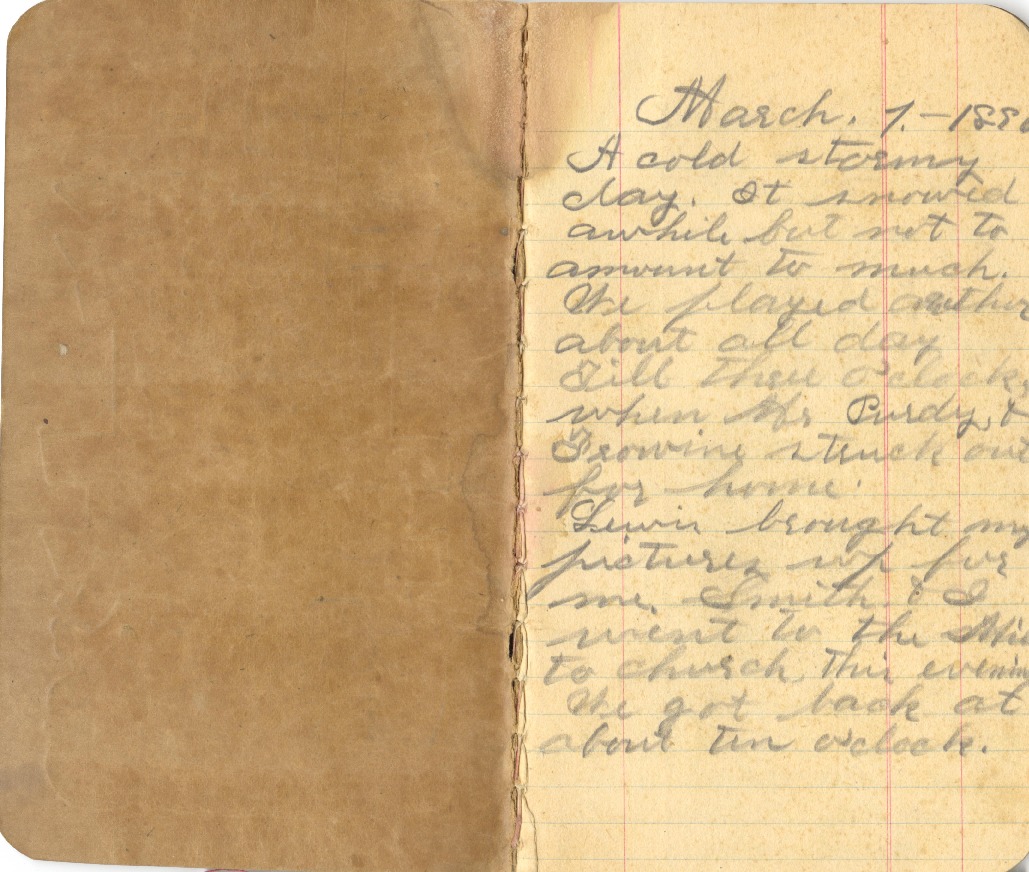 March. 7. - 189
A cold stormy
day. It snowed
awhile but not to
amount to much.
We played author
about all day
Till three o'clock
when Mr Purdy &
struck out
for home.
brought my
pictures up for
me. Smith & I
went to the
to church this evening
We got back at
about ten o'clock.